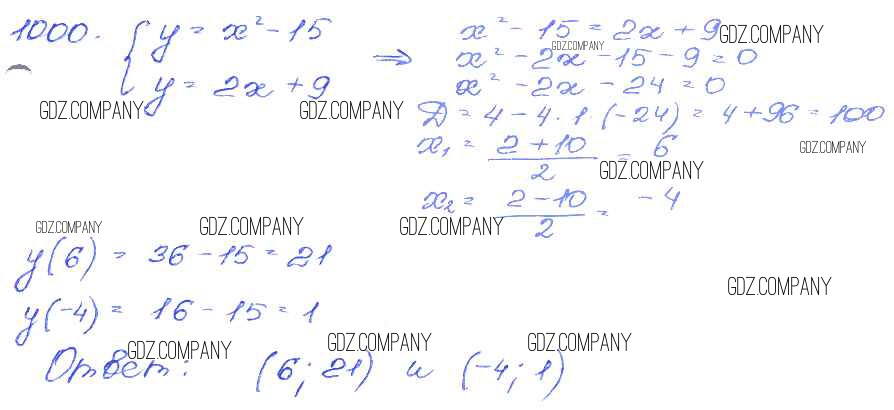 1000. { y = x² - 15
y = 2x + 9
⇒ x² - 15 = 2x + 9
x² - 2x - 15 - 9 = 0
x² - 2x - 24 = 0
Д = 4 - 4 · 1 · (-24) = 4 + 96 = 100
x₁ = (2 + 10)/2 = 6
x₂ = (2 - 10)/2 = -4
y(6) = 36 - 15 = 21
y(-4) = 16 - 15 = 1
Ответ: (6; 21) и (-4; 1)
GDZ.COMPANY
GDZ.COMPANY
GDZ.COMPANY
GDZ.COMPANY
GDZ.COMPANY
GDZ.COMPANY
GDZ.COMPANY
GDZ.COMPANY
GDZ.COMPANY
GDZ.COMPANY
GDZ.COMPANY
GDZ.COMPANY
GDZ.COMPANY